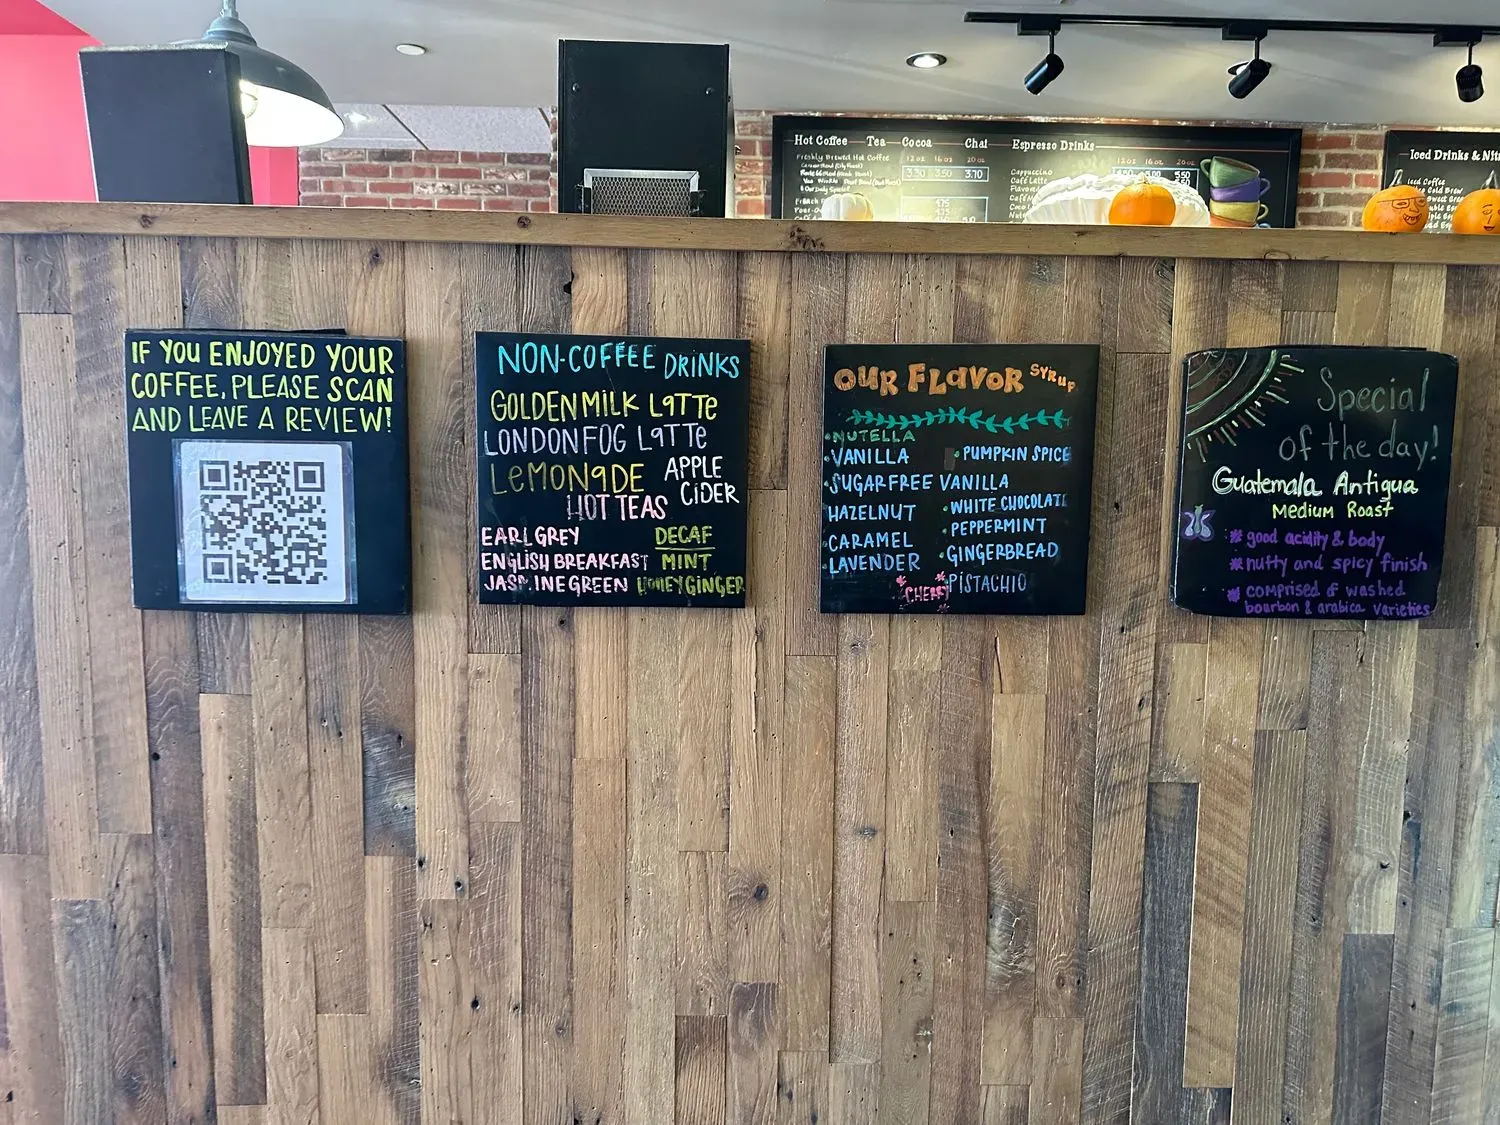 Hot Coffee Tea Cocoa Chai
Freshly Brewed Hot Coffee 12 oz 16 oz 20 oz
3.30 3.50 3.70
Espresso Drinks
12 oz 16 oz 20 oz
Cappuccino
Café Latte
5.00 5.50
Iced Drinks &
Iced Coffee
Cold Brew
IF YOU ENJOYED YOUR
COFFEE, PLEASE SCAN
AND LEAVE A REVIEW!
NON-COFFEE DRINKS
GOLDEN MILK LATTE
LONDON FOG LATTE
LEMONADE
APPLE
CIDER
HOT TEAS
EARL GREY
ENGLISH BREAKFAST
JASMINE GREEN
DECAF
MINT
HONEY GINGER
OUR FLAVOR SYRUP
NUTELLA
VANILLA
SUGAR FREE VANILLA
HAZELNUT
CARAMEL
LAVENDER
CHERRY
PUMPKIN SPICE
WHITE CHOCOLATE
PEPPERMINT
GINGERBREAD
PISTACHIO
Special
of the day!
Guatemala Antigua
Medium Roast
* good acidity & body
* nutty and spicy finish
* comprised of washed
bourbon & arabica varieties